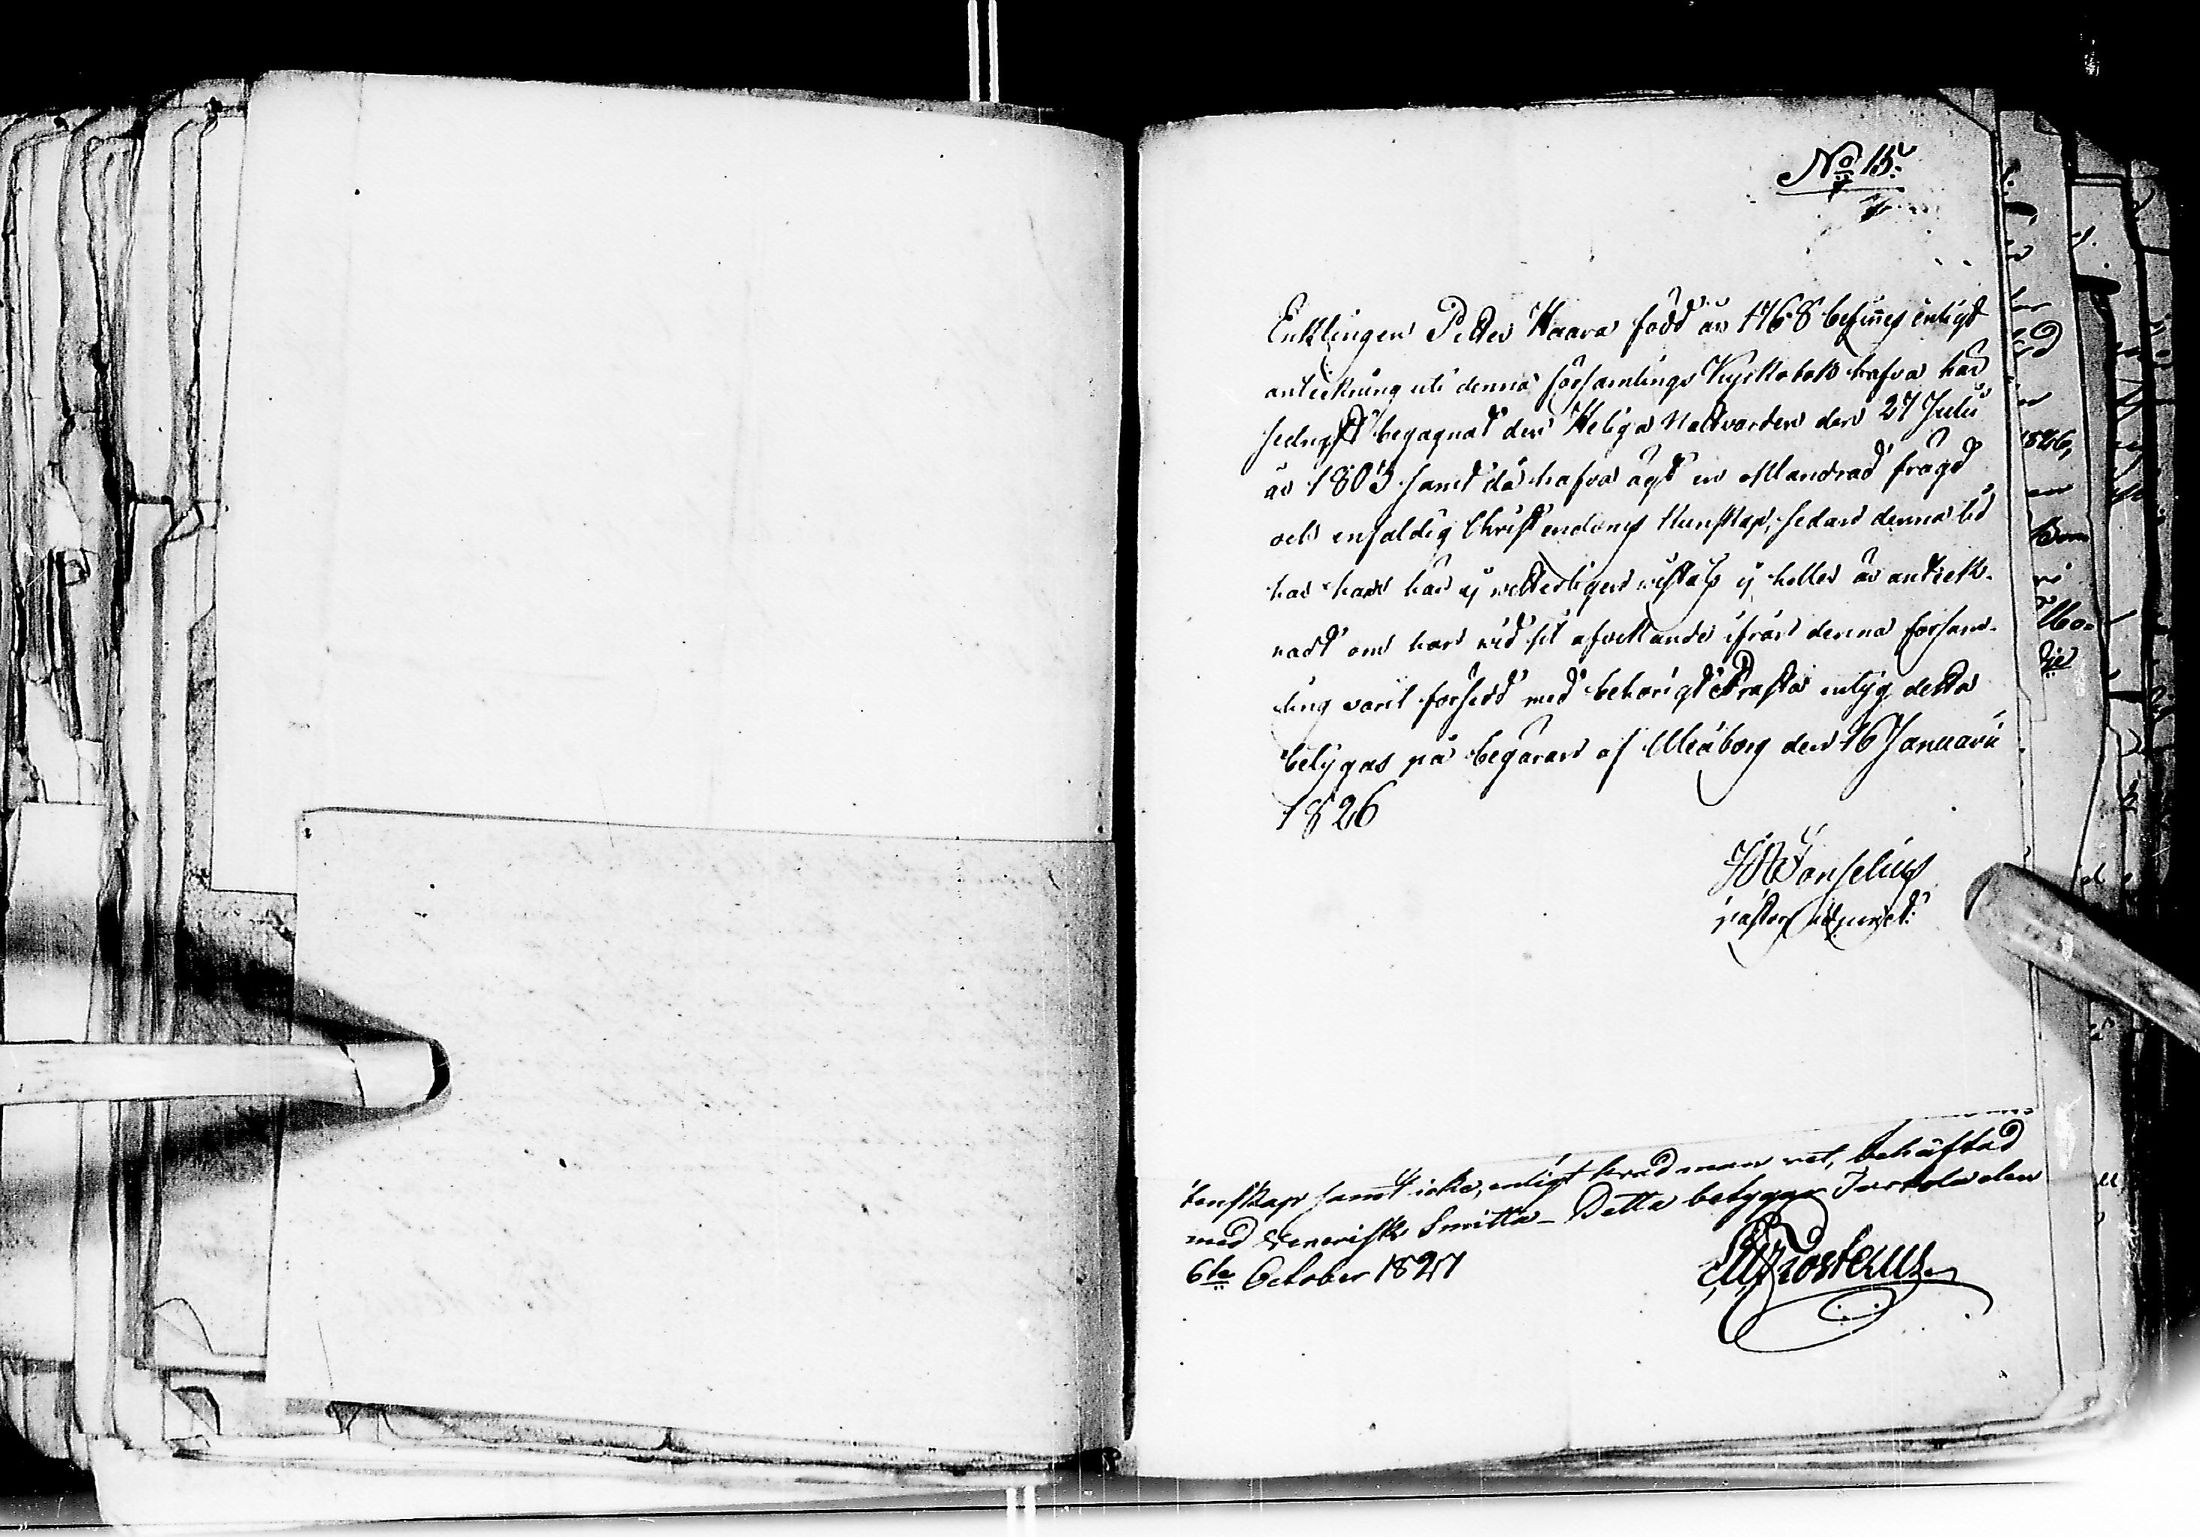 No 15.
Enklingen Petter Haara född år 1768 befinnes enligt
anteckning uti denna församlings Kyrkobok hafva här
sednast begagnat den Heliga Nattvarden den 27 Julii
år 1803 samt då hafva ägt en oklandrad frägd
och enfaldig Christendoms kunskap, sedan denna tid
har han här ej vetterligen vistats ej heller är anteck-
nadt om han vid sit afvikande ifrån denna försam-
ling varit försedd med behörigt Prästa intyg detta
betygas på begäran af Uleåborg den 16 Januarii
1826
pastor adjunct:
tenskap samt icke, enligt hvad man vet, behäftad
med Venerisk Smitta – Detta betygar Tervola den
6te October 1827
1826,